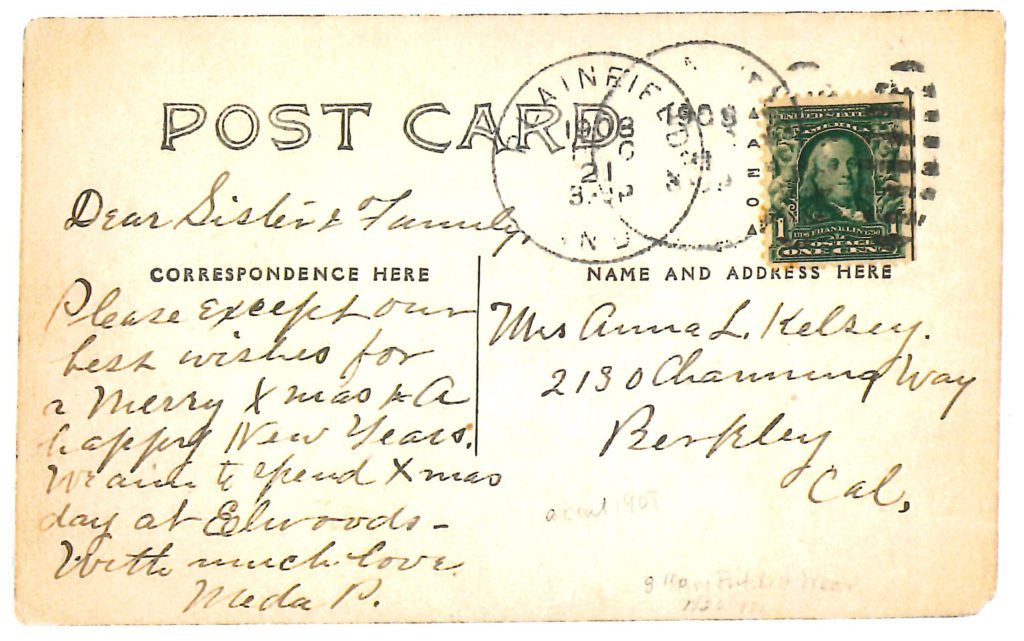 POST CARD
1908
21
1908
UNITED STATES
AMERICA
1706 FRANKLIN 1790
1 1
POSTAGE
ONE CENT
Dear Sister & Family,
CORRESPONDENCE HERE
Please Except our
best wishes for
a Merry Xmas & A
happy New Years.
We aim to spend Xmas
day at Elwoods -
With much love.
Meda P.
NAME AND ADDRESS HERE
Mrs Anna L. Kelsey.
2130 Channing Way
Berkley
Cal,
about 190